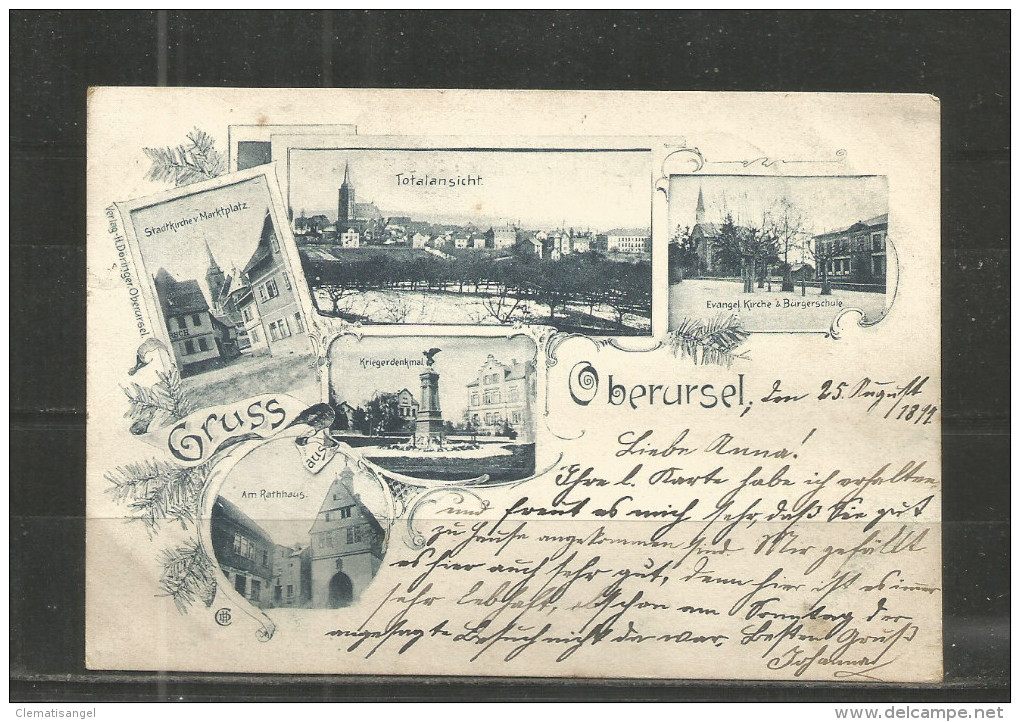 Totalansicht.
Stadtkirche v. Marktplatz.
Verlag H. Döringer, Oberursel
Evangel. Kirche & Bürgerschule
Kriegerdenkmal.
Gruss
aus
Oberursel, den 25. August
Am Rathhaus.
Liebe Anna!
Ihre l. Karte habe ich erhalten
und freut es mich sehr, daß Sie gut
zu Hause angekommen sind. Mir gefällt
es hier auch sehr gut, denn hier ist es immer
sehr lebhaft, obschon am Sonntag der
angesagte Besuch nicht da war. Besten Gruß
Johanna
Clematisangel
www.delcampe.net